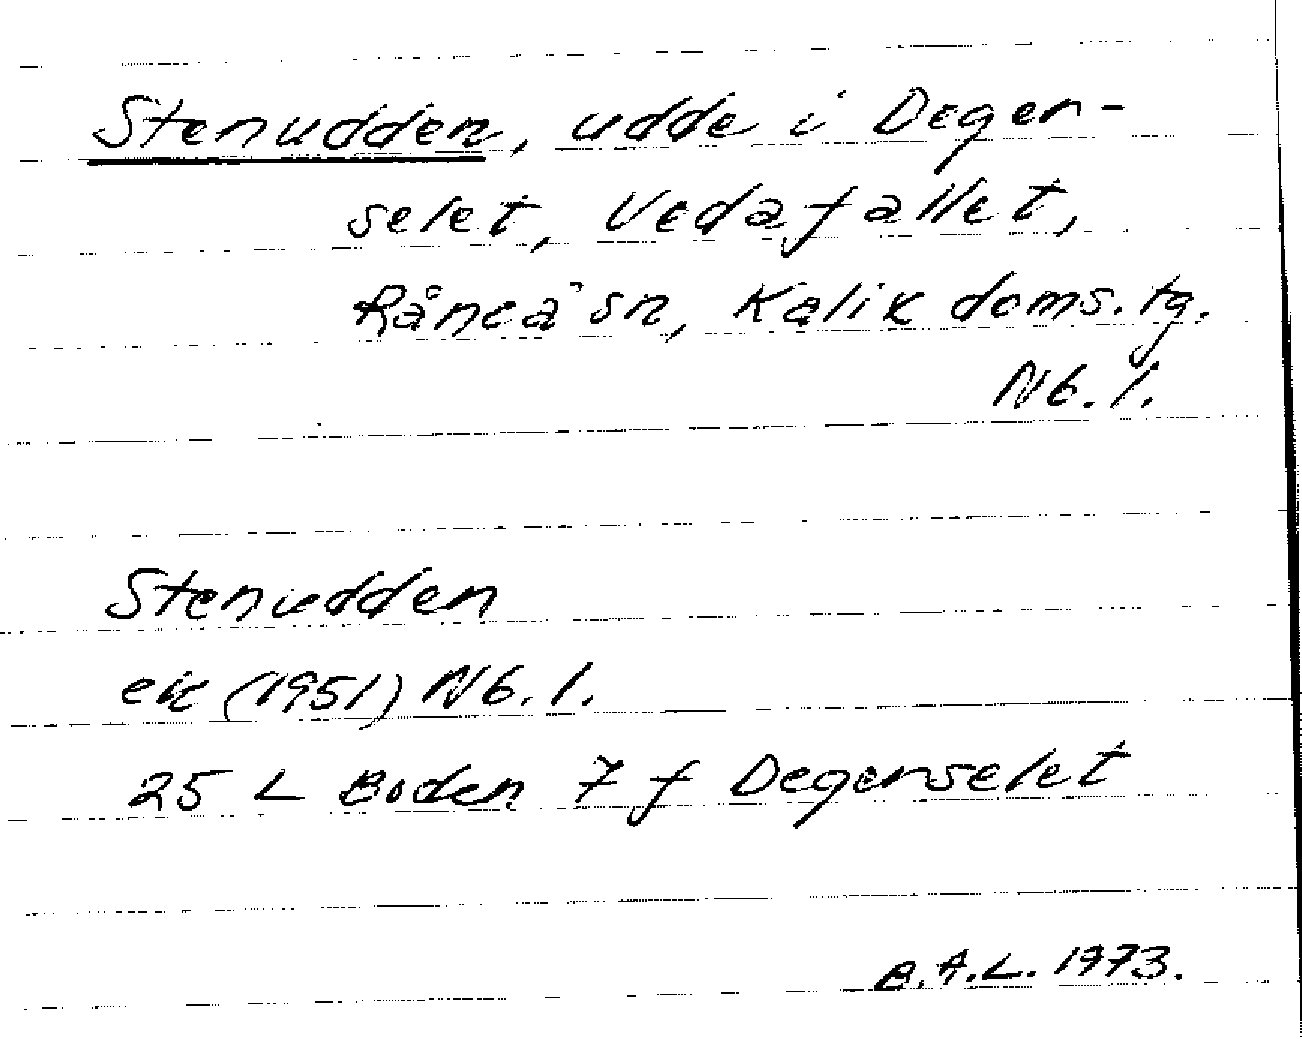 Stenudden, udde i Deger-
selet, Vedafallet,
Råneå sn, Kalix doms. tg.
Nb. l.
Stenudden
ek (1951) Nb. l.
25 L Boden 7 f Degerselet
B.A.L. 1973.